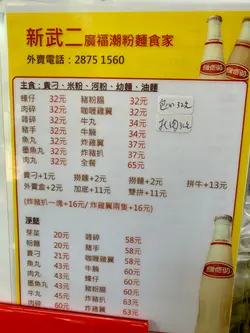 新武二 廣福潮粉麵食家
外賣電話：2875 1560
主食：貴刁、米粉、河粉、幼麵、油麵
蠔仔 32元 豬粉腸 32元
肉碎 32元 咖喱雞翼 32元
雜碎 32元 牛丸 34元
豬手 32元 牛腩 35元
魚丸 32元 炸雞翼 35元
墨魚丸 32元 炸豬扒 37元
肉丸 32元 全餐 65元
貴刁+1元 撈麵+2元 撈麵+2元 拼牛+13元
外賣盒+2元 加底+11元 雙拼+11元
(炸豬扒一塊+16元/ 炸雞翼兩隻+16元)
淨 20元 雜碎 58元
粉麵 20元 豬手 58元
貴刁 21元 咖喱雞翼 58元
魚丸 43元 牛腩 60元
肉丸 43元 炸雞翼 60元
墨魚丸 43元 豬粉腸 60元
牛丸 45元 炸豬扒 63元
肉碎 60元 蠔仔 63元